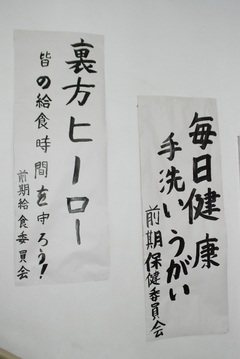 毎日健康
手洗いうがい
前期保健委員会
裏方ヒーロー
皆の給食時間を守ろう!
前期給食委員会